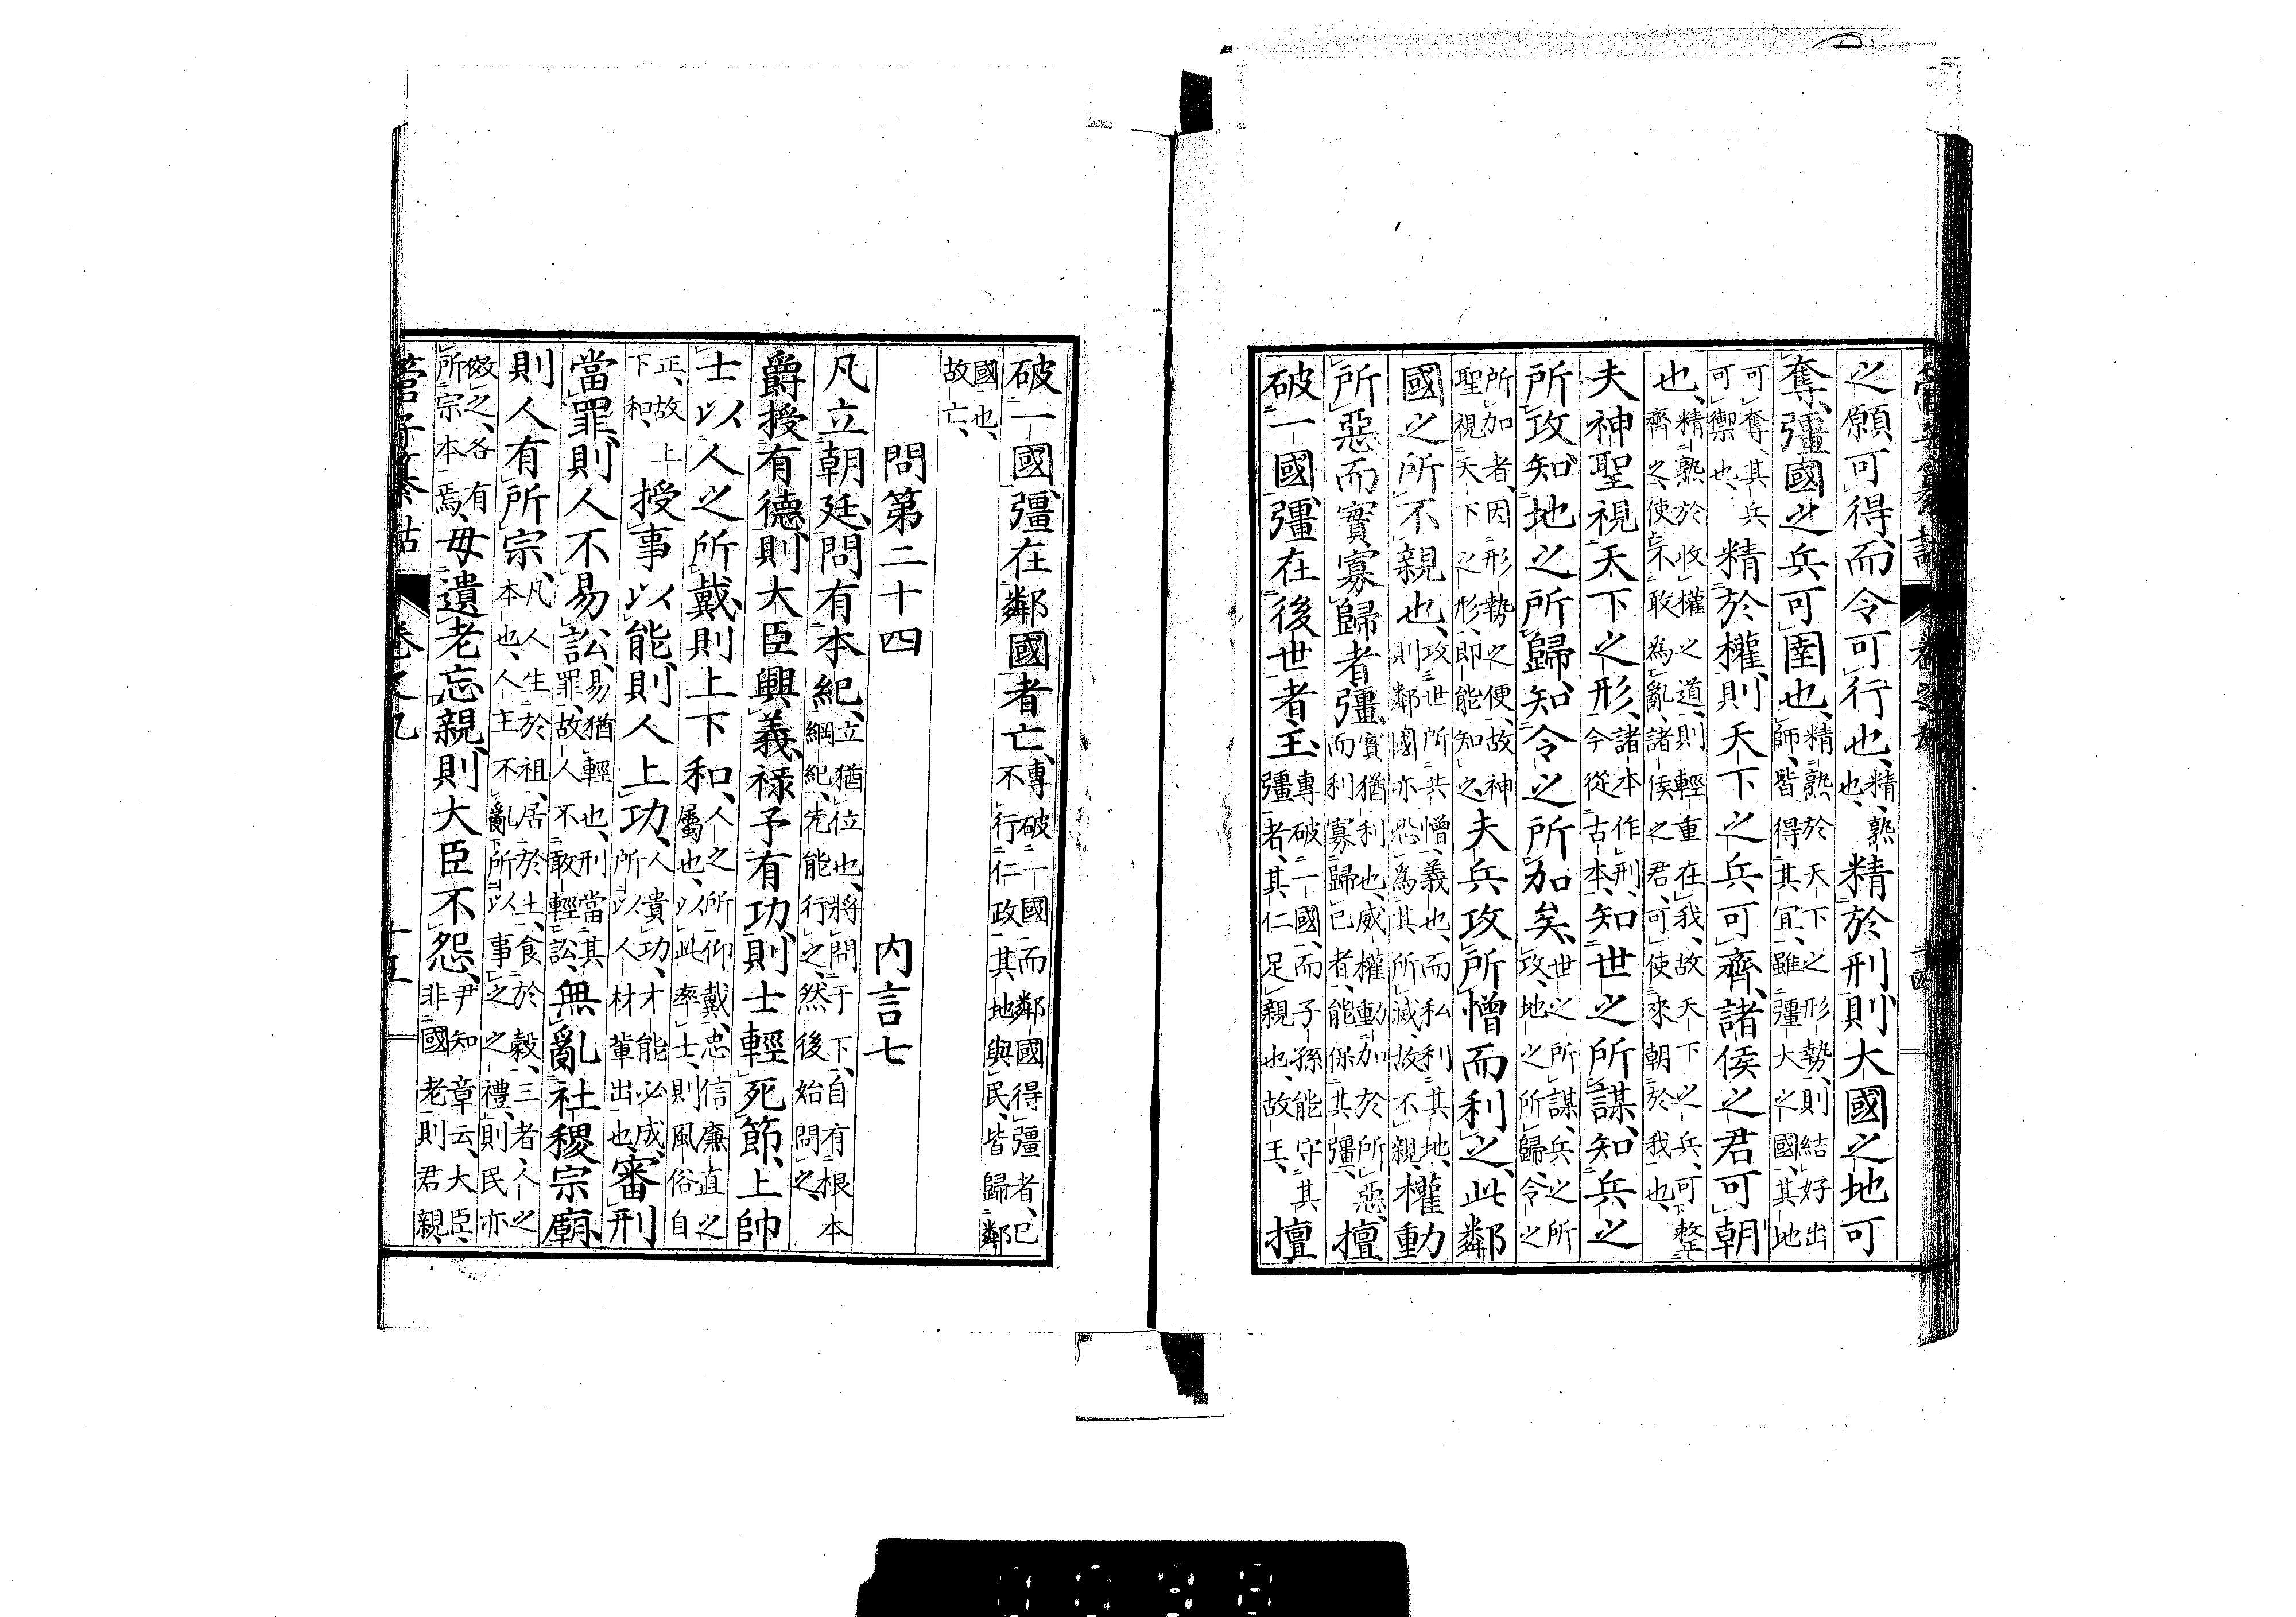 之願可得而令可行也精熟也精於刑則大國之地可
奪彊國之兵可圉也精熟於天下之形勢則結好出師皆得其宜雖彊大之國其地
可奪其兵可禦也精於權則天下之兵可齊諸侯之君可朝
也精熟於收權之道則輕重在我故天下之兵可整齊之使不敢為亂諸侯之君可使來朝於我也
夫神聖視天下之形諸本作刑今從古本知世之所謀知兵之
所攻知地之所歸知令之所加矣世之所謀兵之所攻地之所歸令之
所加者因形勢之便故神聖視天下之形即能知之夫兵攻所憎而利之此鄰
國之所不親也攻世所共憎義也而私利其地則鄰國亦恐為其所滅故不親權動
所惡而實寡歸者彊實猶利也威權動加於所惡而利寡歸已者能保其彊擅
破一國彊在後世者王專破一國而子孫能守其彊者其仁足親也故王擅
破一國彊在鄰國者亡專破一國而鄰國得彊者已不行仁政其地與民皆歸鄰
國也故亡
問第二十四 内言七
凡立朝廷問有本紀立猶位也將問于下自有根本綱紀先能行之然後始問之
爵授有德則大臣興義祿予有功則士輕死節上帥
士以人之所戴則上下和人之所仰戴忠信廉直之屬也以此率士則風俗自
正故上下和授事以能則人上功人貴功才能必成所以人材輩出也審刑
當罪則人不易訟易猶輕也刑當其罪故人不敢輕訟無亂社稷宗廟
則人有所宗凡人生於祖居於土食於穀三者人之本也人主不亂所以事之之禮則民亦
傚之各有所宗本焉毋遺老忘親則大臣不怨尹知章云大臣非國老則君親
管子纂詁 卷之九 十五